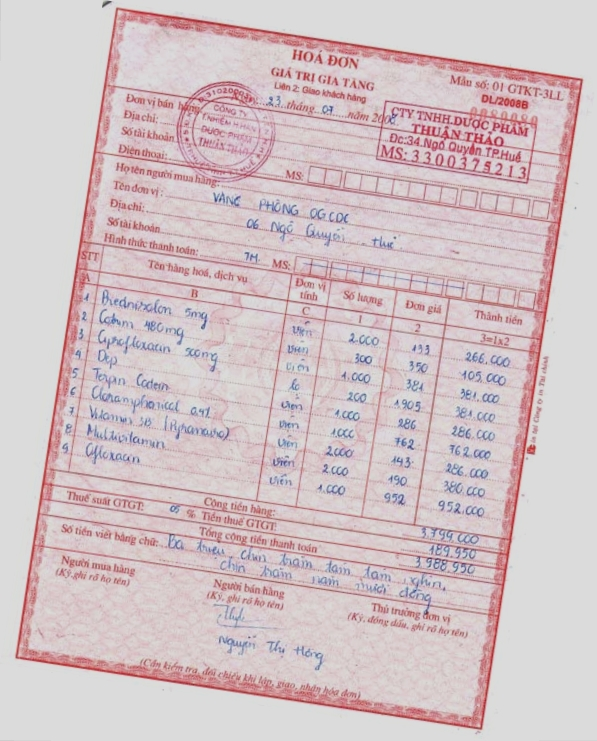 HOÁ ĐƠN
GIÁ TRỊ GIA TĂNG
Liên 2: Giao khách hàng
Mẫu số: 01 GTKT-3LL
DL/2008B
0080080
23 tháng 07 năm 2008
Đơn vị bán hàng
CÔNG TY
T.NHIỆM H.HẠN
DƯỢC PHẨM
THUẬN THẢO
CTY TNHH.DƯỢC PHẨM
THUẬN THẢO
Đc:34 Ngô Quyền TP.Huế
MS: 3300375213
Địa chỉ:
Số tài khoản
Điện thoại: MS:
Họ tên người mua hàng:
Tên đơn vị: VĂNG PHÒNG OGCDC
Địa chỉ: 06 Ngô Quyền - Huế
Số tài khoản
Hình thức thanh toán: TM. MS:
STT Tên hàng hoá, dịch vụ Đơn vị tính Số lượng Đơn giá Thành tiền
A B C 1 2 3=1x2
1 Prednizolon 5mg viên 2.000 133 266.000
2 Cotrim 480mg viên 300 350 105.000
3 Ciprofloxacin 500mg viên 1.000 381 381.000
4 Dep lọ 200 1905 381.000
5 Terpin Codein viên 1.000 286 286.000
6 Cloramphenicol 0.4% 1.000 762 762.000
7 Vitamin 3B viên 2.000 143 286.000
8 Multivitamin viên 2.000 190 380.000
9 Ofloxacin viên 1.000 952 952.000
Cộng tiền hàng: 3.799.000
Thuế suất GTGT: 05 % Tiền thuế GTGT: 189.950
Tổng cộng tiền thanh toán 3.988.950
Số tiền viết bằng chữ: Ba triệu, chín trăm tám tám nghìn,
chín trăm năm mươi đồng
Người mua hàng Người bán hàng Thủ trưởng đơn vị
(Ký, ghi rõ họ tên) (Ký, ghi rõ họ tên) (Ký, đóng dấu, ghi rõ họ tên)
Nguyễn Thị Hồng
(Cần kiểm tra, đối chiếu khi lập, giao, nhận hóa đơn)